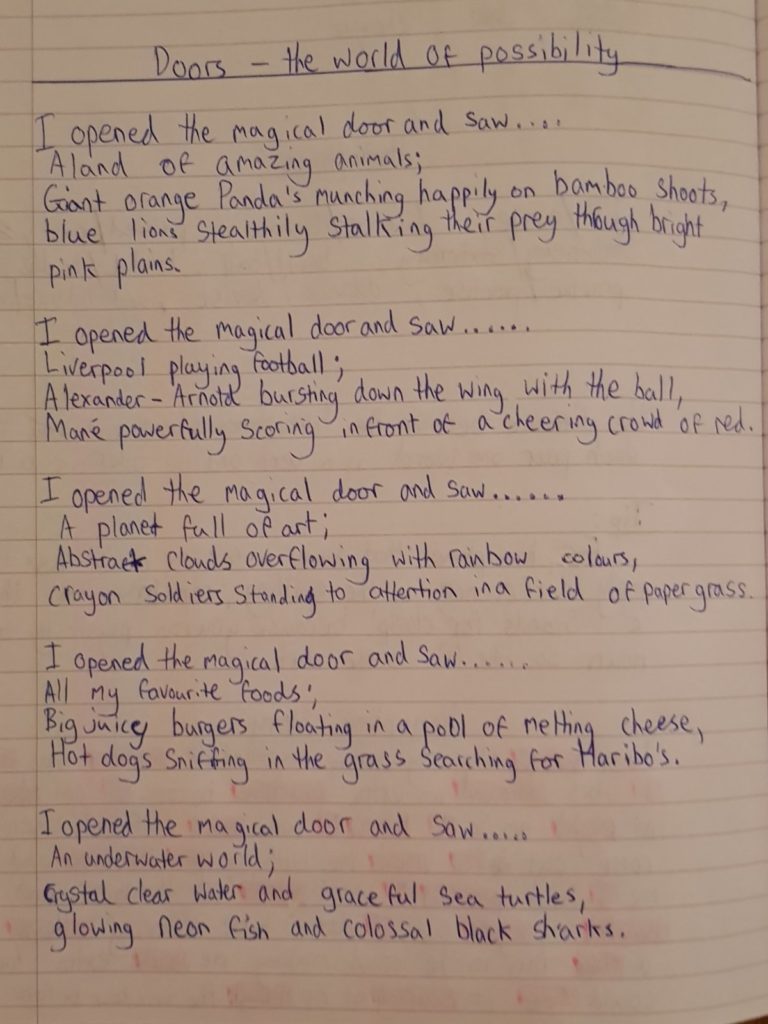 Doors - the world of possibility
I opened the magical door and saw....
A land of amazing animals;
Giant orange Panda's munching happily on bamboo shoots,
blue lions stealthily stalking their prey though bright
pink plains.
I opened the magical door and saw......
Liverpool playing football;
Alexander-Arnold bursting down the wing with the ball,
Mané powerfully scoring infront of a cheering crowd of red.
I opened the magical door and saw......
A planet full of art;
Abstract clouds overflowing with rainbow colours,
Crayon soldiers standing to attention in a field of paper grass.
I opened the magical door and saw......
All my favourite foods;
Big juicy burgers floating in a pool of melting cheese,
Hot dogs sniffing in the grass searching for Haribo's.
I opened the magical door and saw.....
An underwater world;
Crystal clear water and graceful sea turtles,
glowing neon fish and colossal black sharks.